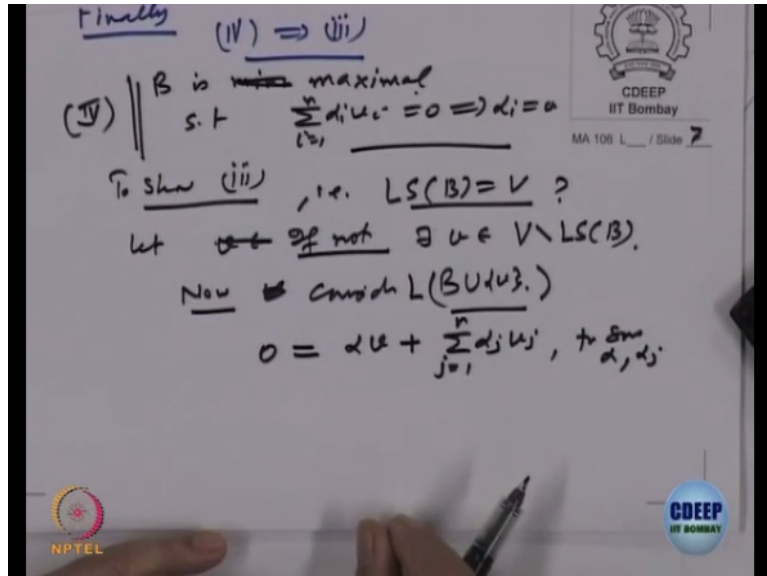 Finally (IV) ⟹ (iii)
CDEEP
IIT Bombay
MA 106 L___ / Slide 7
(IV) B is maximal
s.t. \sum_{i=1}^{n} α_i v_i = 0 ⟹ α_i = 0
To show (iii), i.e. LS(B) = V ?
Let If not ∃ v ∈ V \ LS(B).
Now consider L(B ∪ {v}.)
0 = αv + \sum_{j=1}^{n} α_j v_j, for some α, α_j
NPTEL
CDEEP
IIT BOMBAY